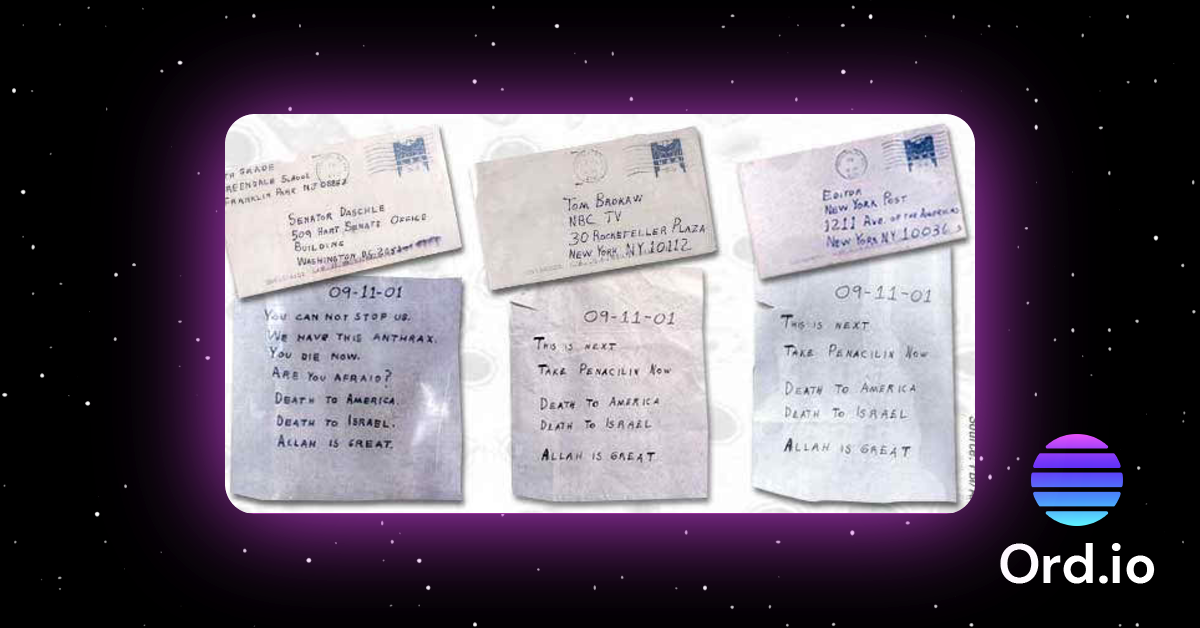 TH GRADE
REENDALE SCHOOL
FRANKLIN PARK NJ 08852
SENATOR DASCHLE
509 HART SENATE OFFICE
BUILDING
WASHINGTON DC
09-11-01
YOU CAN NOT STOP US.
WE HAVE THIS ANTHRAX.
YOU DIE NOW.
ARE YOU AFRAID?
DEATH TO AMERICA.
DEATH TO ISRAEL.
ALLAH IS GREAT.
TOM BROKAW
NBC TV
30 ROCKEFELLER PLAZA
NEW YORK NY 10112
09-11-01
THIS IS NEXT
TAKE PENACILIN NOW
DEATH TO AMERICA
DEATH TO ISRAEL
ALLAH IS GREAT
EDITOR
NEW YORK POST
1211 AVE. OF THE AMERICAS
NEW YORK NY 10036
09-11-01
THIS IS NEXT
TAKE PENACILIN NOW
DEATH TO AMERICA
DEATH TO ISRAEL
ALLAH IS GREAT
Source:
Ord.io